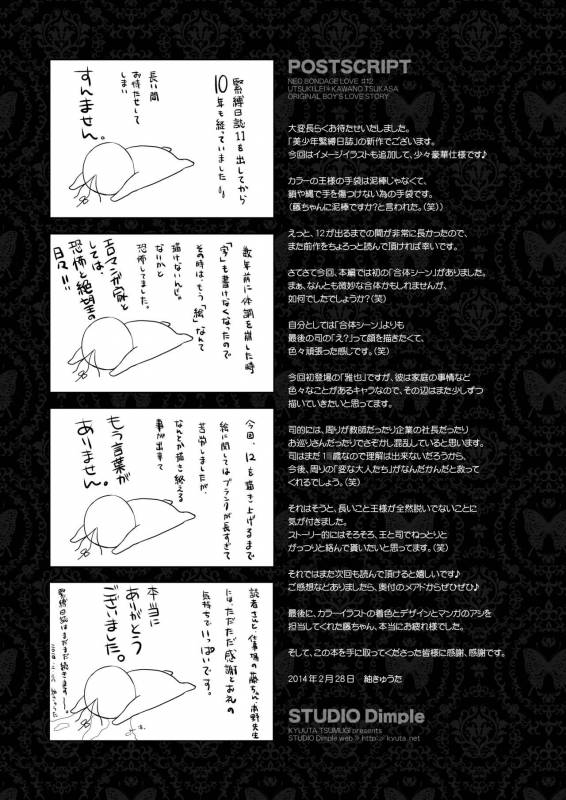 緊縛日誌11を出してから
10年も経っていました!!
長い間
お待たせして
しまい
すんません。
数年前に体調を崩した時
「字」も書けなくなったので
その時は、もう「絵」なんて
描けないんじゃ
ないかと
恐怖してました。
エロマンガ家と
しては、
恐怖と絶望の
日々!!
今回、12を描き上げるまで
絵に関してはブランクが長すぎて
苦労しましたが、
なんとか描き終える
事が出来て
もう言葉が
ありません。
読者さんと、仕事場の藤ちゃん、南野先生
には、ただただ感謝とお礼の
気持ちでいっぱいです。
本当に
ありがとう
ございました。
緊縛日誌はまだまだ続きますー。
POSTSCRIPT
NEO BONDAGE LOVE #12
UTSUKI,EI+KAWANO TSUKASA
ORIGINAL BOY'S LOVE STORY
大変長らくお待たせいたしました。
「美少年緊縛日誌」の新作でございます。
今回はイメージイラストも追加して、少々豪華仕様です♪
カラーの王様の手袋は泥棒じゃなくて、
鎖や縄で手を傷つけない為の手袋です。
(藤ちゃんに泥棒ですか?と言われた。(笑))
えっと、12が出るまでの間が非常に長かったので、
また前作をちょろっと読んで頂ければ幸いです。
さてさて今回、本編では初の「合体シーン」がありました。
まぁ、なんとも微妙な合体かもしれませんが、
如何でしたでしょうか?(笑)
自分としては「合体シーン」よりも
最後の司の「え?」って顔を描きたくて、
色々頑張った感じです。(笑)
今回初登場の「雅也」ですが、彼は家庭の事情など
色々なことがあるキャラなので、その辺はまた少しずつ
描いていきたいと思ってます。
司的には、周りが教師だったり企業の社長だったり
お巡りさんだったりでさぞかし混乱していると思います。
司はまだ1歳なので理解は出来ないだろうから、
今後、周りの「変な大人たち」がなんだかんだと救って
くれるでしょう。(笑)
それはそうと、長いこと王様が全然脱いでないことに
気が付きました。
ストーリー的にはそろそろ、王と司でねっとりと
がっつりと絡んで貰いたいと思ってます。(笑)
それではまた次回も読んで頂けると嬉しいです♪
ご感想などありましたら、奥付のメアドからぜひぜひ♪
最後に、カラーイラストの着色とデザインとマンガのアシを
担当してくれた藤ちゃん、本当にお疲れ様でした。
そして、この本を手に取ってくださった皆様に感謝、感謝です。
2014年2月28日 紬きゅうた
STUDIO Dimple
KYUUTA TSUMUGI presents
STUDIO Dimple web > http:// kyuta.net